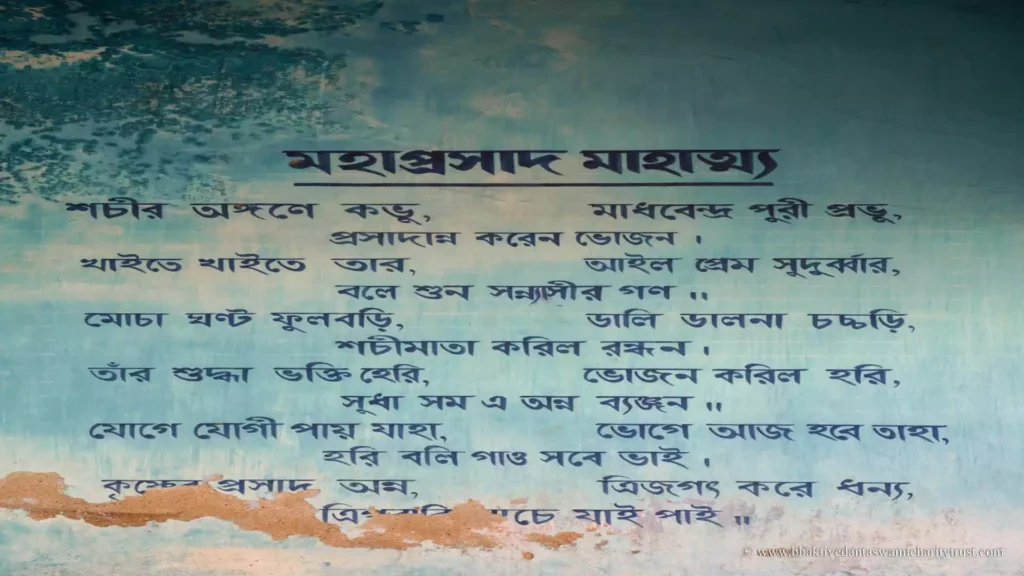 মহাপ্রসাদ মাহাত্ম্য
শচীর অঙ্গণে কভু, মাধবেন্দ্র পুরী প্রভু,
প্রসাদান্ন করেন ভোজন ।
খাইতে খাইতে তার, আইল প্রেম সুদুর্ব্বার,
বলে শুন সন্ন্যাসীর গণ ।।
মোচা ঘণ্ট ফুলবড়ি, ডালি ডালনা চচ্চড়ি,
শচীমাতা করিল রন্ধন ।
তাঁর শুদ্ধা ভক্তি হেরি, ভোজন করিল হরি,
সুধা সম এ অন্ন ব্যঞ্জন ।।
যোগে যোগী পায় যাহা, ভোগে আজ হবে তাহা,
হরি বলি গাও সবে ভাই ।
কৃষ্ণের প্রসাদ অন্ন, ত্রিজগৎ করে ধন্য,
যাই পাই ।।
© www.bhaktivedantaswamicharitytrust.com